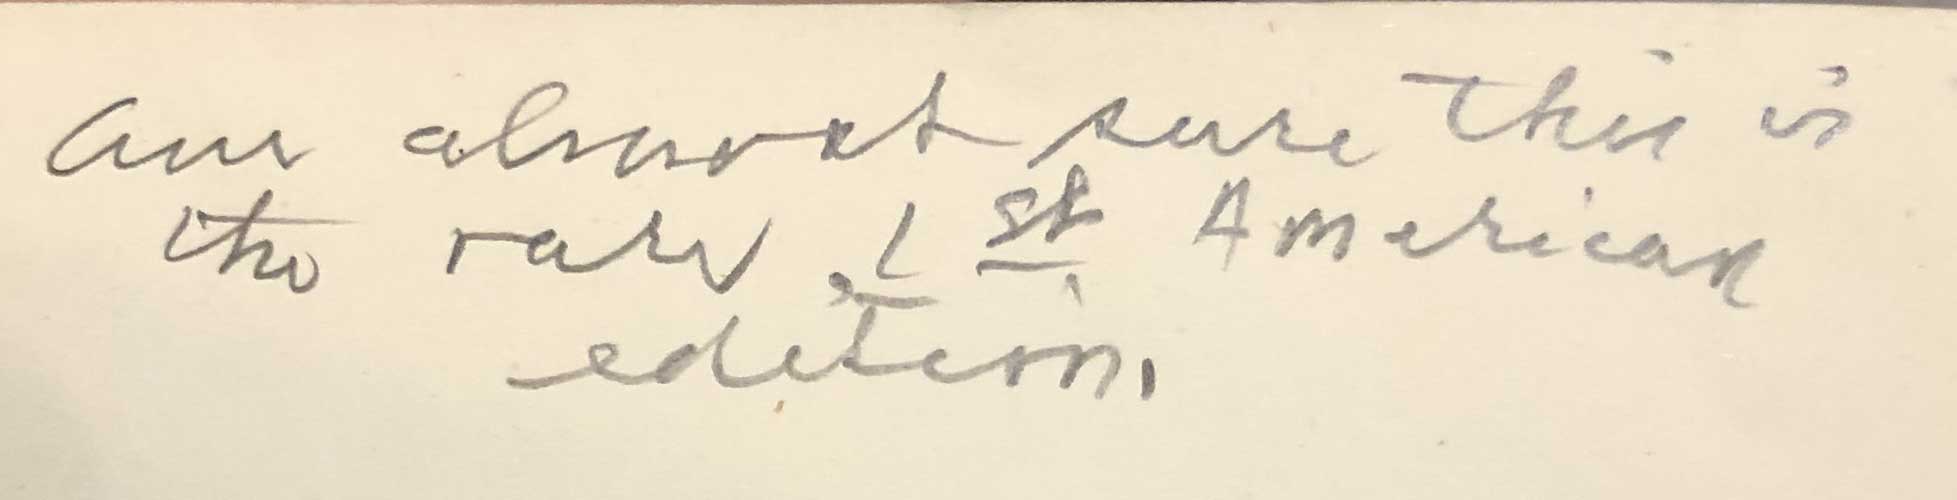 Am almost sure this is
the rare 1st American
edition.